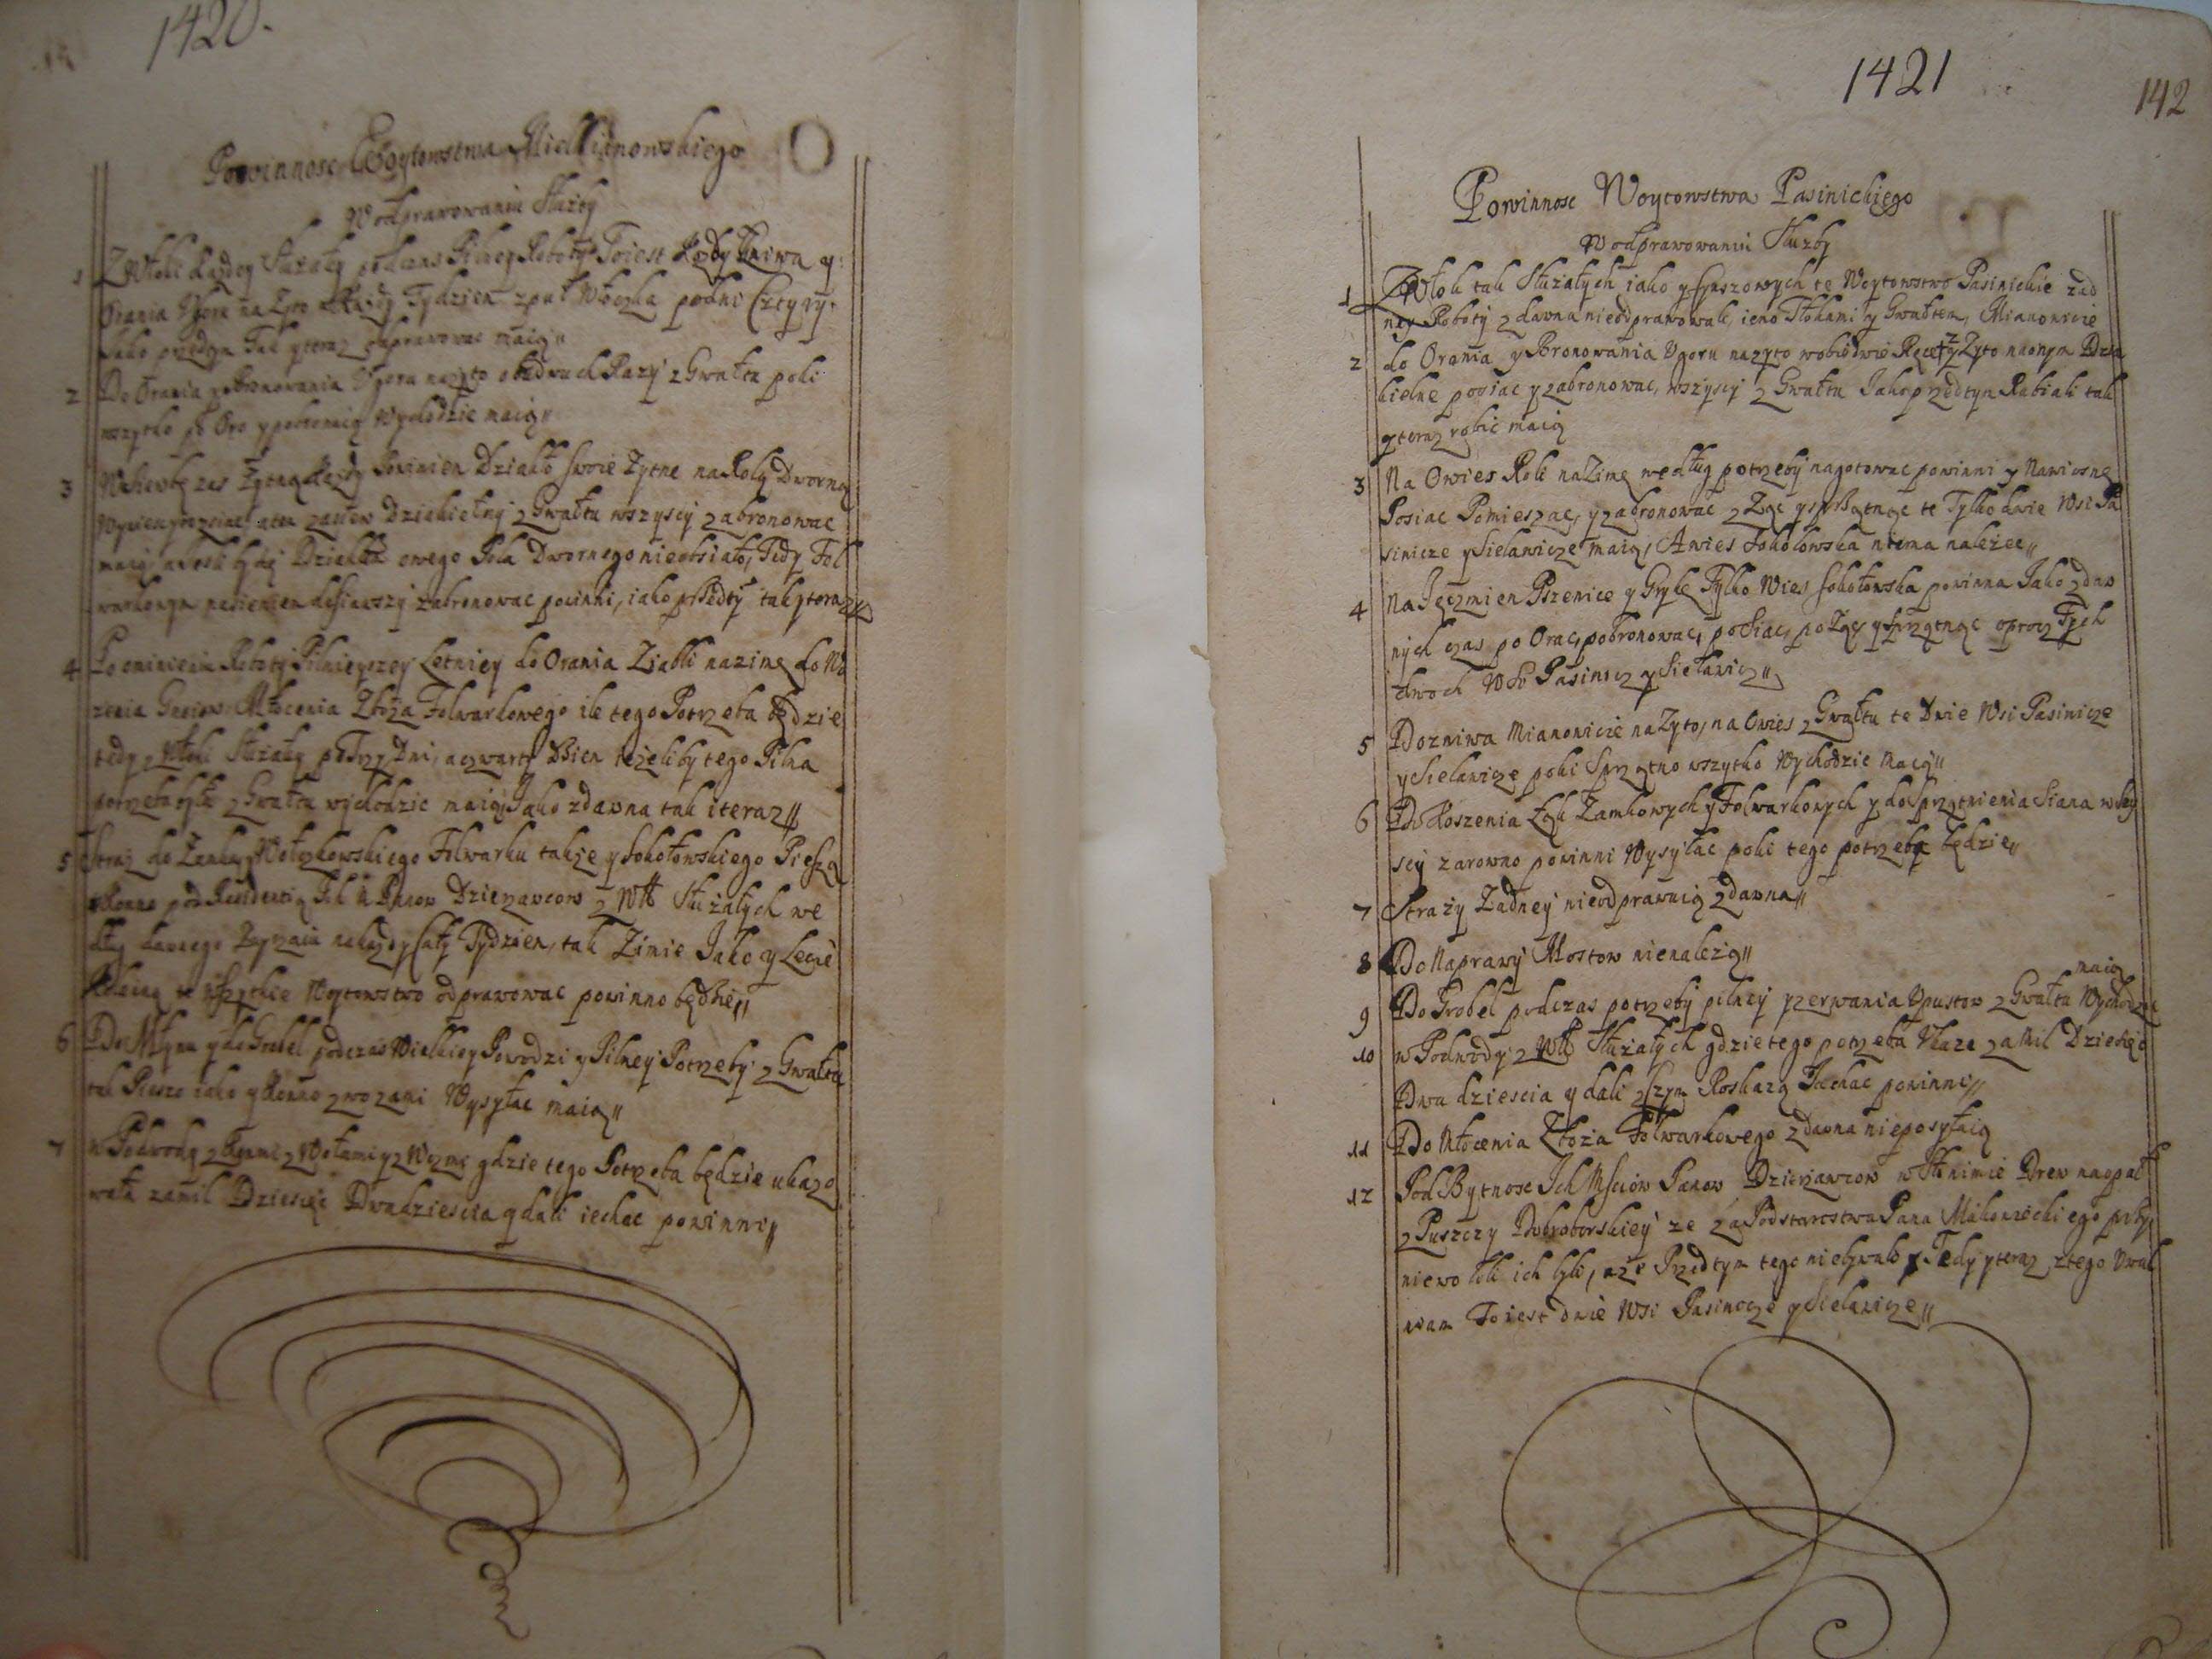 1420.
Powinnosc Woytowstwa
W odprawowaniu Służby
1 Z Włoki każdey Służały podczas Pilney Roboty To iest Kiedy Żniwa y
Orania Ugoru na Żyto na każdy Tydzien z puł Włoczka po dni Cztyry
Jako przedtym Tak y teraz odprawowac maią
2 Do Orania y bronowania Ugoru na żyto obudwuch Razy z Gwałtu poki
wszytko po Oro y pobronuią Wychodzic maią
3 zas Żytną Każdy Powinien Działko swoie Żytne na Rolą Dworną
zasiew Dziakielny z Gwałtu wszyscy zabronowac
maią owego Pola Dwornego nieobsiało, Tedy Fol
warkowym nasieniem dosiawszy zabronowac powinni, iako przedty tak y teraz
4 Po ominieniu Roboty Pilnieyszey Letniey do Orania Ziabli na zimę do Wo
żenia Gnoiow Młocenia Zboża Folwarkowego ile tego Potrzeba będzie
tedy z Włoki Służały po Trzy Dni, a czwarty Dzien ieżeliby tego Pilna
potrzeba była z Gwałtu wychodzic maią Jako zdawna tak i teraz
5 Straż do Zamku y Folwarku także y Sokołowskiego Pieszą
y Konno pod Residentią Ich Panow Dzierzawcow z Włk Służałych we
dług dawnego Zwyczaiu na każdy Cały Tydzien, tak Zimie Jako y Lecie
te wszytkie Woytowstwo odprawowac powinno będzie
6 Do Młyna y do Grobel podczas Wielkiey Powodzi y Pilney Potrzeby z Gwałtu
tak Pieszo iako y Konno z wozami Wysyłac maią
7 w Podwodę z Konmi z Wołami y z Wozmi gdzie tego Potrzeba będzie ukazo
wała za mil Dziesięc Dwadziescia y dali iechac powinni
1421
142
Powinnosc Woytowstwa Pasinickiego
W odprawowaniu Służby
1 Z Włok tak Służałych iako y Czynszowych te Woytowstwo Pasinickie żad
ney Roboty z dawna nieodprawowali, ieno Tłokami y Gwałtem, Mianowicie
2 do Orania y Bronowania Ugoru na żyto w obiedwie Ręce y Żyto na onym Dzia
kielne posiac y zabronowac, wszyscy z Gwałtu Jako przedtym Rabiali tak
y teraz robic maią
3 Na Owies Roli na Zimę według potrzeby nagotowac powinni y Na wiosnę
Posiac Pomieszac, y zabronowac z Żąc y sprzątnąc te Tylko dwie Wsi Pa
sinicze y Sielawicze maią, A wies Sokołowska niema należec
4 Na Jęczmien Pszenice y Grykę Tylko Wies Sokołowska powinna Jako z daw
nych czas po Orac, pobronowac, posiac, po Żąc y sprzątnąc oprocz Tych
dwoch Wsi Pasinicz y Sielawicz
5 Do żniwa Mianowicie na Żyto, na Owies z Gwałtu te Dwie Wsi Pasinicze
y Sielawicze poki Sprzątno wszytko Wychodzic Maią
6 Do Koszenia Łąk Zamkowych y Folwarkowych y do Sprzątnienia Siana wszy
scy zarowno powinni Wysyłac poki tego potrzeba będzie
7 Straży Żadney nieodprawuią zdawna
8 Do Naprawy Mostow nienależą
maią
9 Do Grobel podczas potrzeby pilney y zerwania Upustow z Gwałtu Wychodzic
10 w Podwody z Włk Służałych gdzie tego potrzeba Ukaże za Mil Dziesięc
Dwadziescia y dali z Czym Roskażą Jachac powinni
11 Do Młocenia Zboża Folwarkowego zdawna nieposyłaią
12 Pod Bytnosc Ich Msciow Panow Dzierzawcow w Słonimie Drew na opał
z Puszczy Dobroborskiey że za Podstarostwa Pana Mikorzickiego przy
niewoleli ich byli, a że Przedtym tego niebywało Tedy y teraz z tego Uwal
niam To iest dwie Wsi Pasinicze y Sielawicze